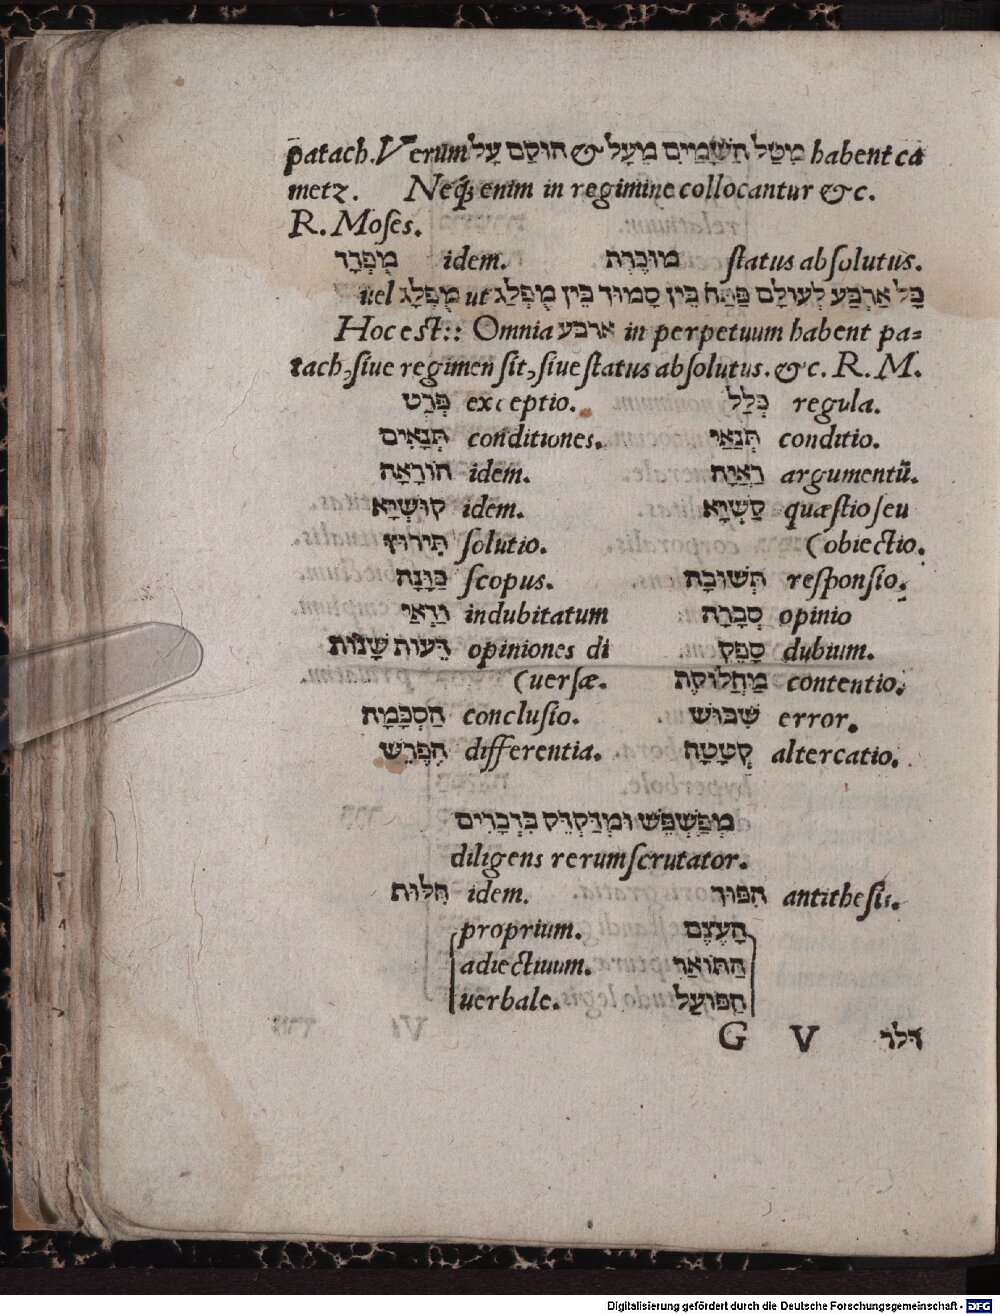 patach. Verum מִטַּל הַשָּׁמַיִם מֵעָל & הוּקַם עָל habent ca
metz. Neq; enim in regimine collocantur &c.
R. Moses.
מוּכְרָת status absolutus. מֻפְרָד idem.
כָּל אַרְבַּע לְעוֹלָם פַּתַּח בֵּין סָמוּךְ בֵּין מֻפְלַג ut מֻפְלָג uel
Hoc est:: Omnia ארבע in perpetuum habent pa=
tach, siue regimen sit, siue status absolutus. &c. R. M.
כְּלָל regula. פְּרָט exceptio.
תְּנַאי conditio. תְּנָאִים conditiones.
רְאָיָה argumentū. הוֹרָאָה idem.
קַשְׁיָא quæstio seu קוּשְׁיָא idem.
(obiectio. תֵּירוּץ solutio.
תְּשׁוּבָה responsio. כַּוָּנָה scopus.
סְבָרָה opinio וַדְּאַי indubitatum
סָפֵק dubium. דֵּעוֹת שָׁנוֹת opiniones di
מַחֲלוֹקֶת contentio. (uersæ.
שִׁבּוּשׁ error. הַסְכָּמָה conclusio.
קְטָטָה altercatio. הֶפְרֵשׁ differentia.
מְפַשְׁפֵּשׁ וּמְדַקְדֵּק בִּדְבָרִים
diligens rerum scrutator.
הִפּוּךְ antithesis. חִלּוּף idem.
הָעֶצֶם proprium.
הַתּוֹאַר adiectiuum.
הַפּוֹעַל uerbale.
G V דלר
Digitalisierung gefördert durch die Deutsche Forschungsgemeinschaft - DFG